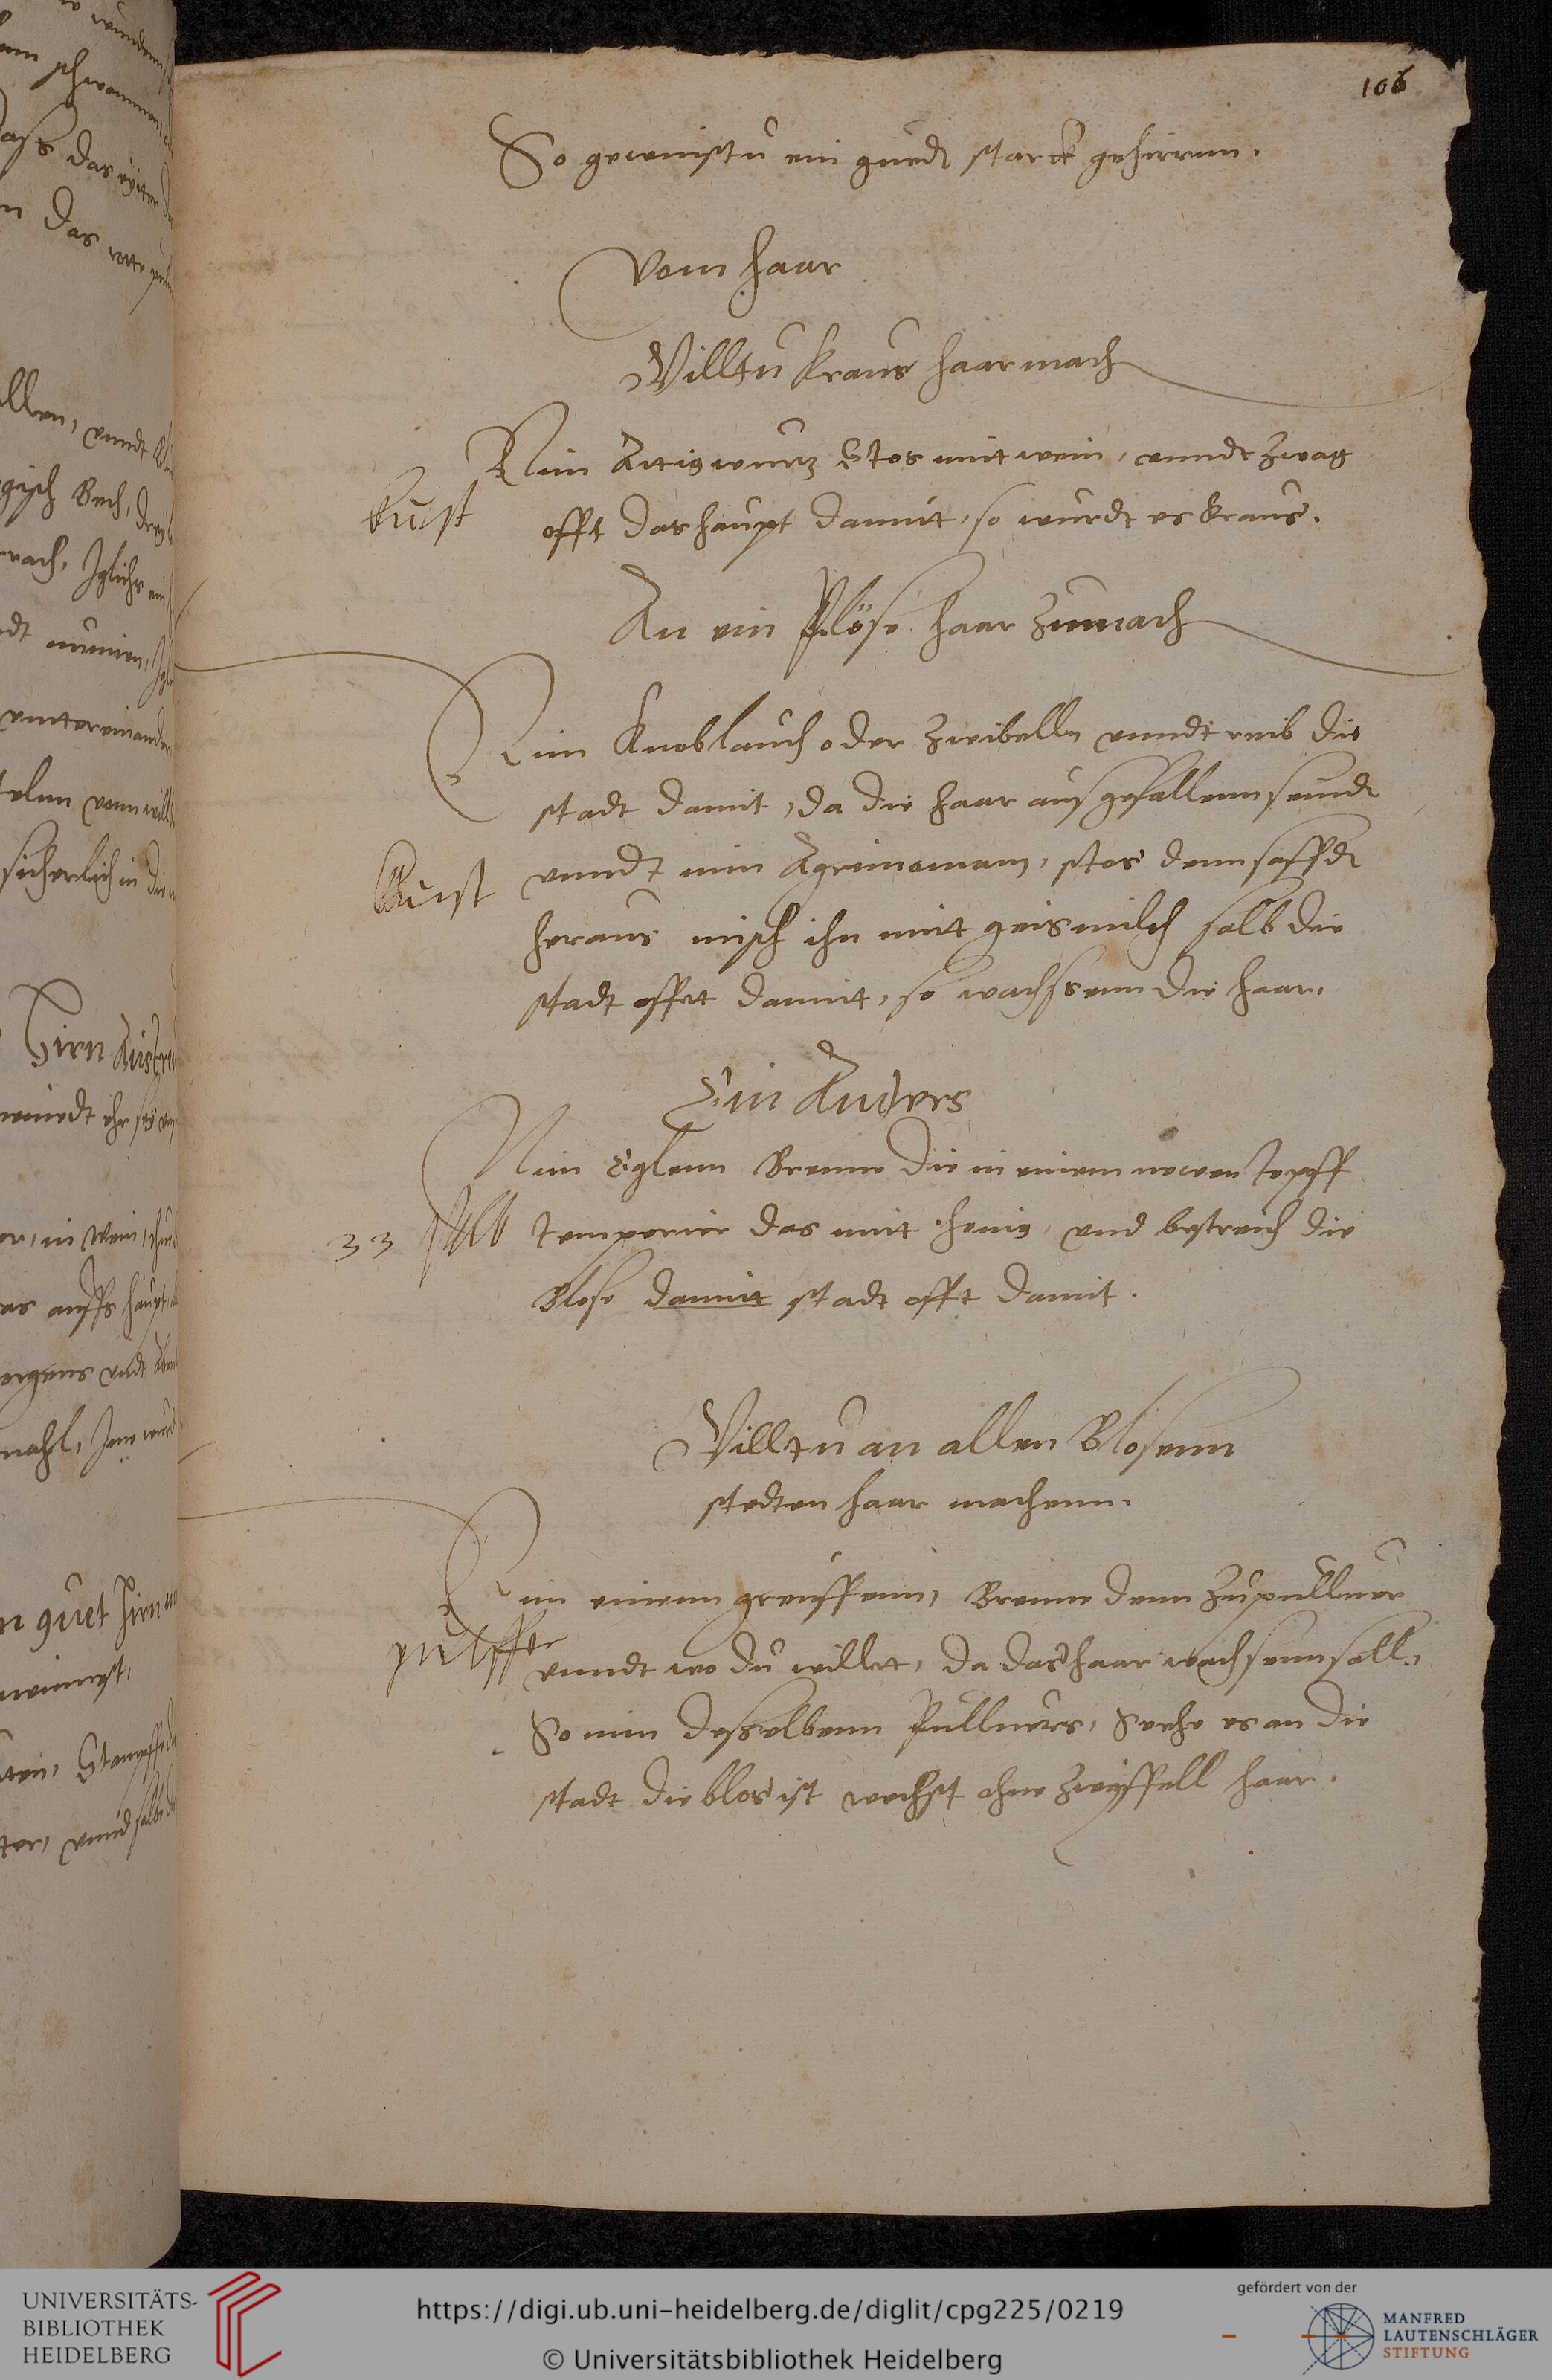 106
So gewinstu ein guedt starck gehirrnn.
Vom haar
Willtu kraus haar mach
Nim Attigwurz Stos mit wein, vnndt zwag
kunst
offt das haupt damit, so wurdt es kraus.
An ein Plöse haar zumach
Nim Knoblauch oder zwibelln vnndt reib die
stadt damit, da die haar ausgefallenn seindt
kunst
vnndt nim Agrimoniam, stos denn safft
heraus misch ihn mitt geismilch salb die
stadt offtt damit, so wachssenn die haar.
Ein Anders
Nim Eglenn Brenne die in einem newen topff
33 salb
temperier das mitt honig, vnd bestreich die
Blose damit stadt offt damit.
Willtu an allen Blosenn
stedten haar machenn.
Nim einenn greuffenn, Brenne denn zu pulluer
pulffer
vnndt wo du willtt, da das haar wachsenn soll,
So nim desselbenn Pulluers, Sprehe es an die
stadt die blos ist wechst ohne zweyffell haar.
UNIVERSITÄTS-
BIBLIOTHEK
HEIDELBERG
https://digi.ub.uni-heidelberg.de/diglit/cpg225/0219
© Universitätsbibliothek Heidelberg
gefördert von der
MANFRED
LAUTENSCHLÄGER
STIFTUNG